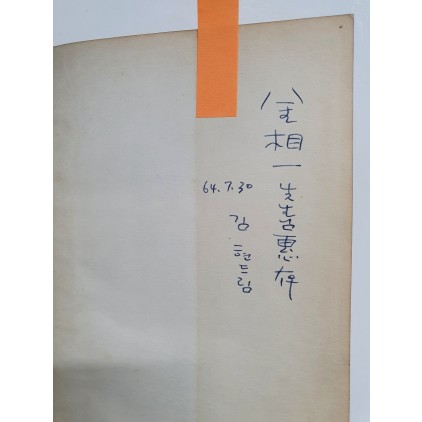 金相一先生惠存
64.7.30
김현드림